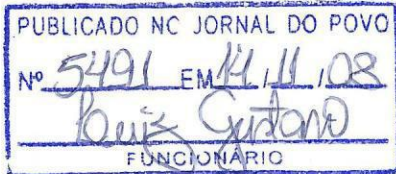 PUBLICADO NC JORNAL DO POVO
Nº 5491 EM 14, 11, 08
Luiz Gustavo
FUNCIONÁRIO